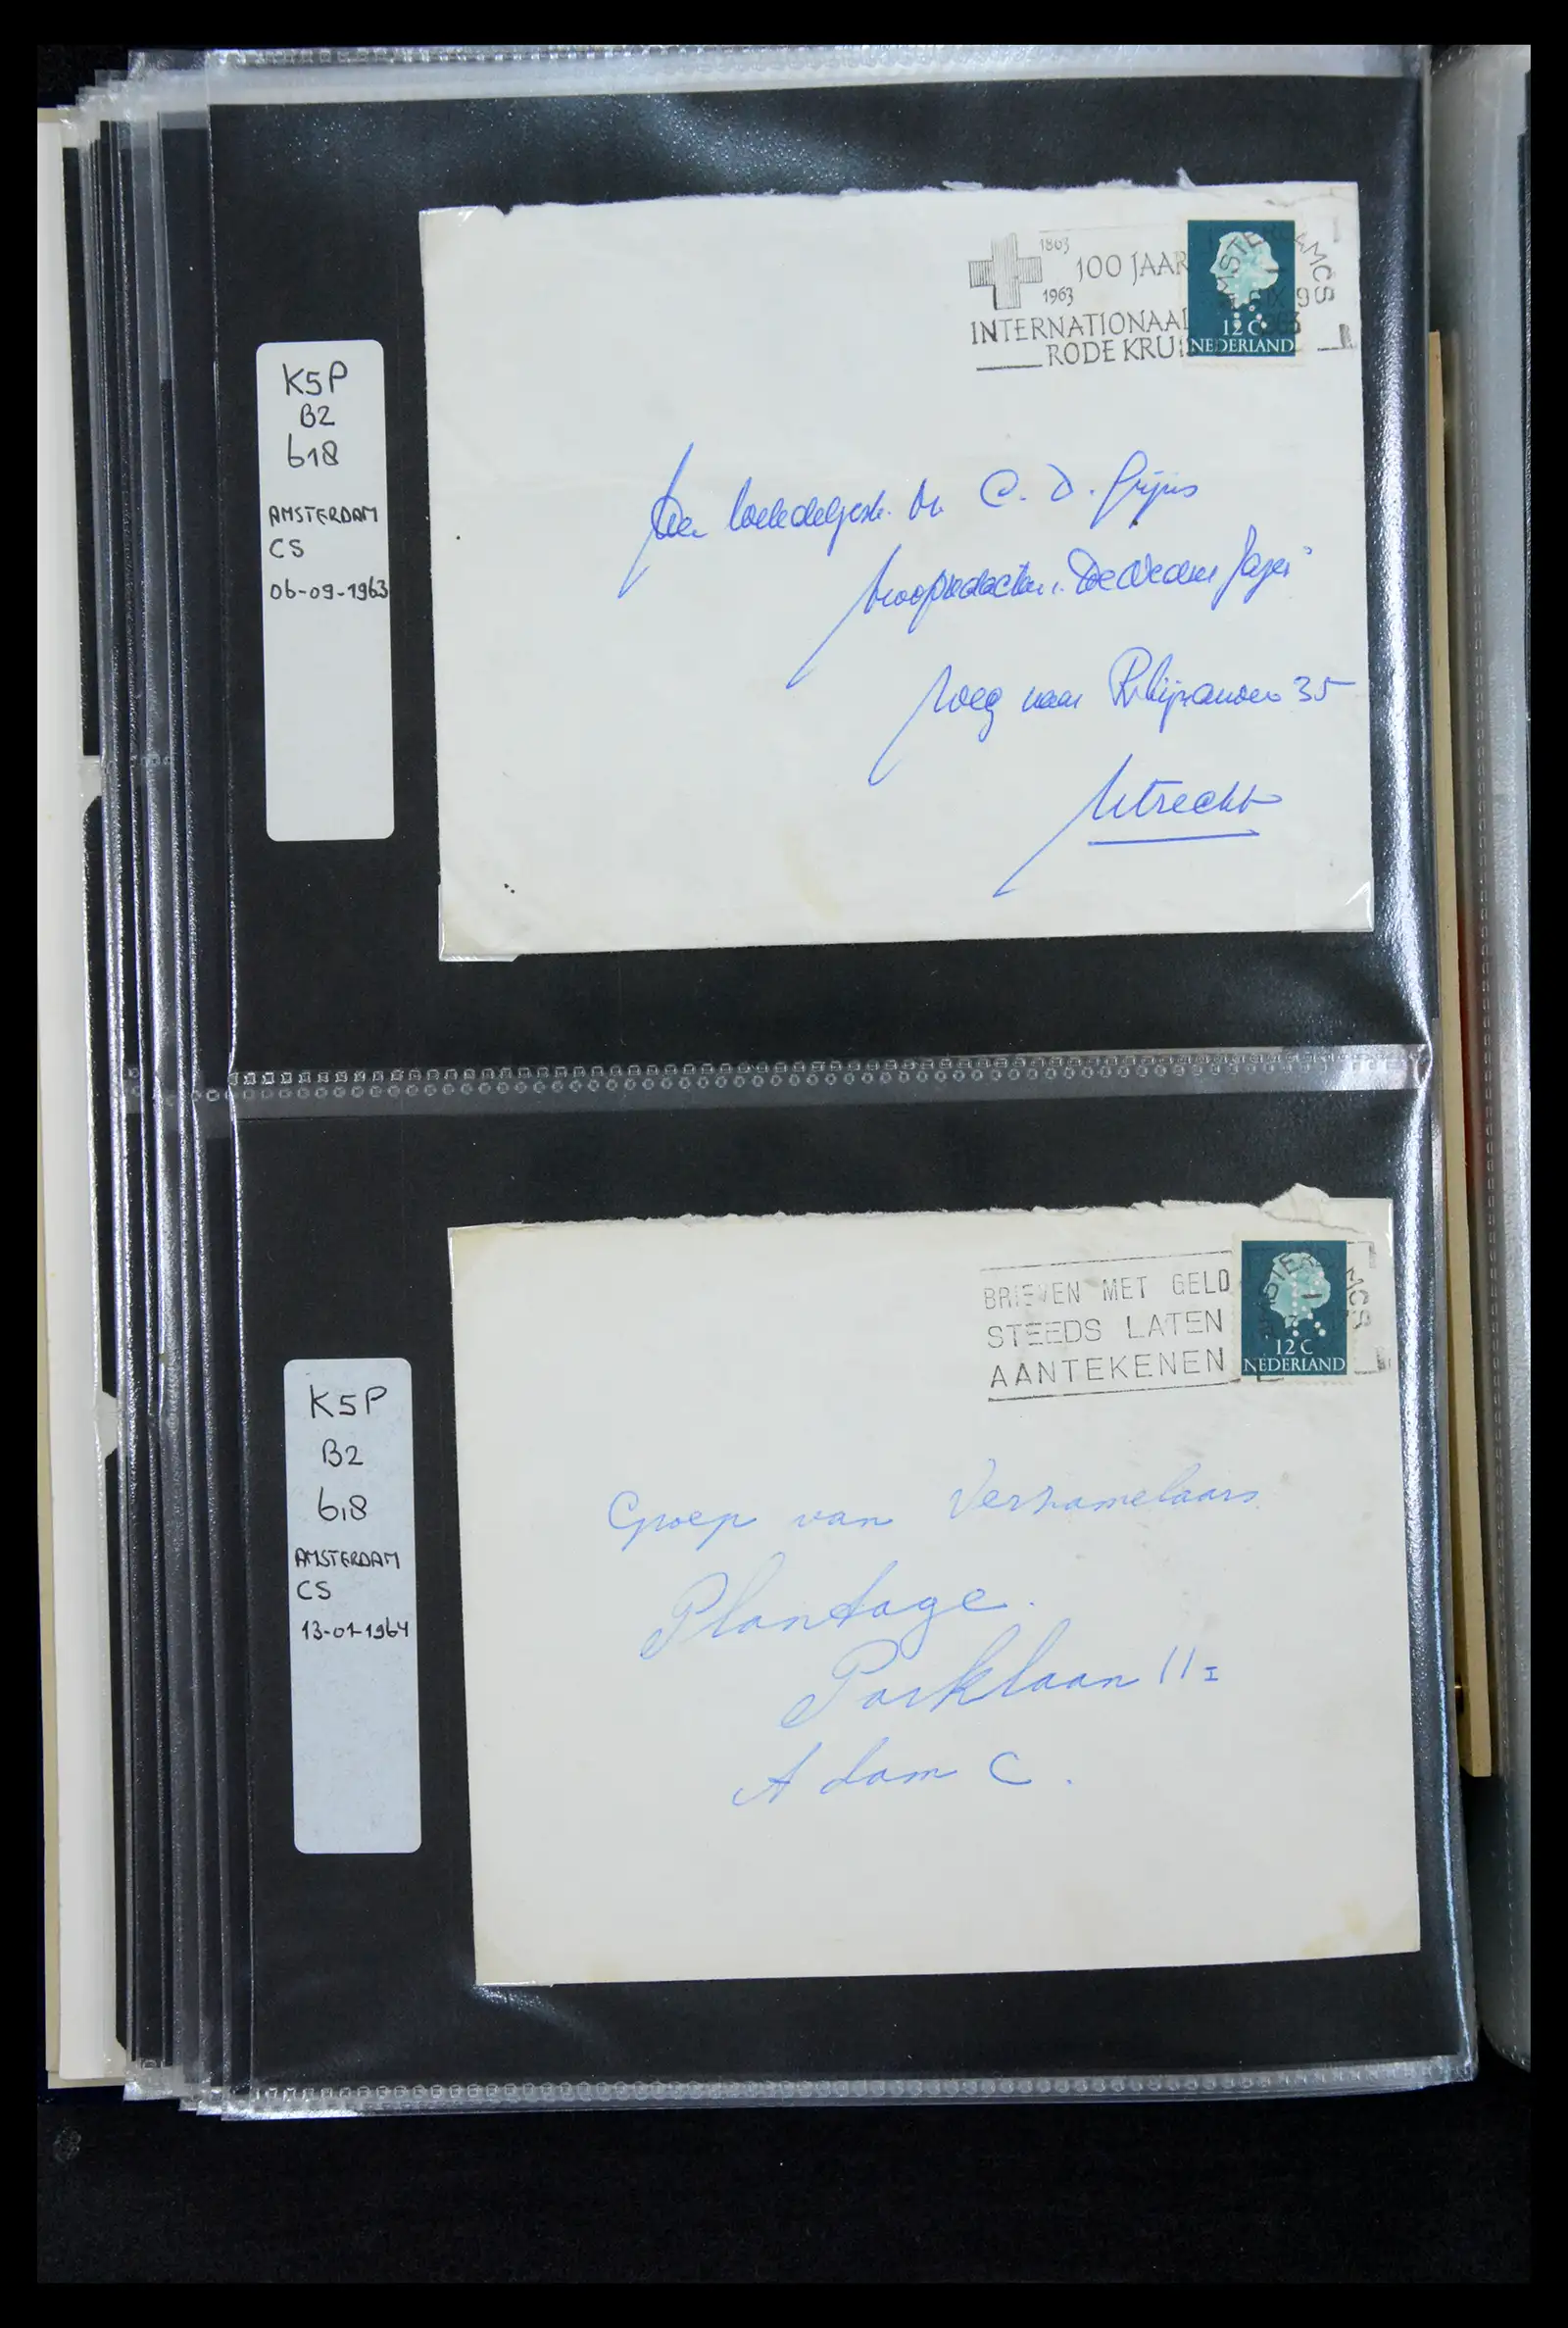 K5P
B2
b18
AMSTERDAM
CS
06-09-1963
1863
100 JAAR
1963
INTERNATIONAAL
RODE KRUI
AMSTERDAMCS
12 C
NEDERLAND
C. D. Grijns
Weg naar Rhijnauwen 35
Utrecht
K5P
B2
b18
AMSTERDAM
CS
13-01-1964
BRIEVEN MET GELD
STEEDS LATEN
AANTEKENEN
AMSTERDAMCS
12 C
NEDERLAND
Groep van Verzamelaars
Plantage.
Parklaan 11 I
A dam C.